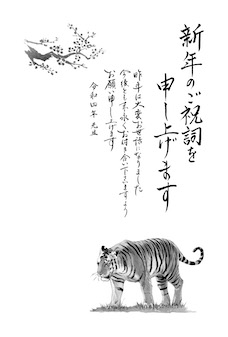 新年のご祝詞を
申し上げます
昨年は大変お世話になりました
今後とも末永くお付き合い下さいますよう
お願い申し上げます
令和四年 元旦